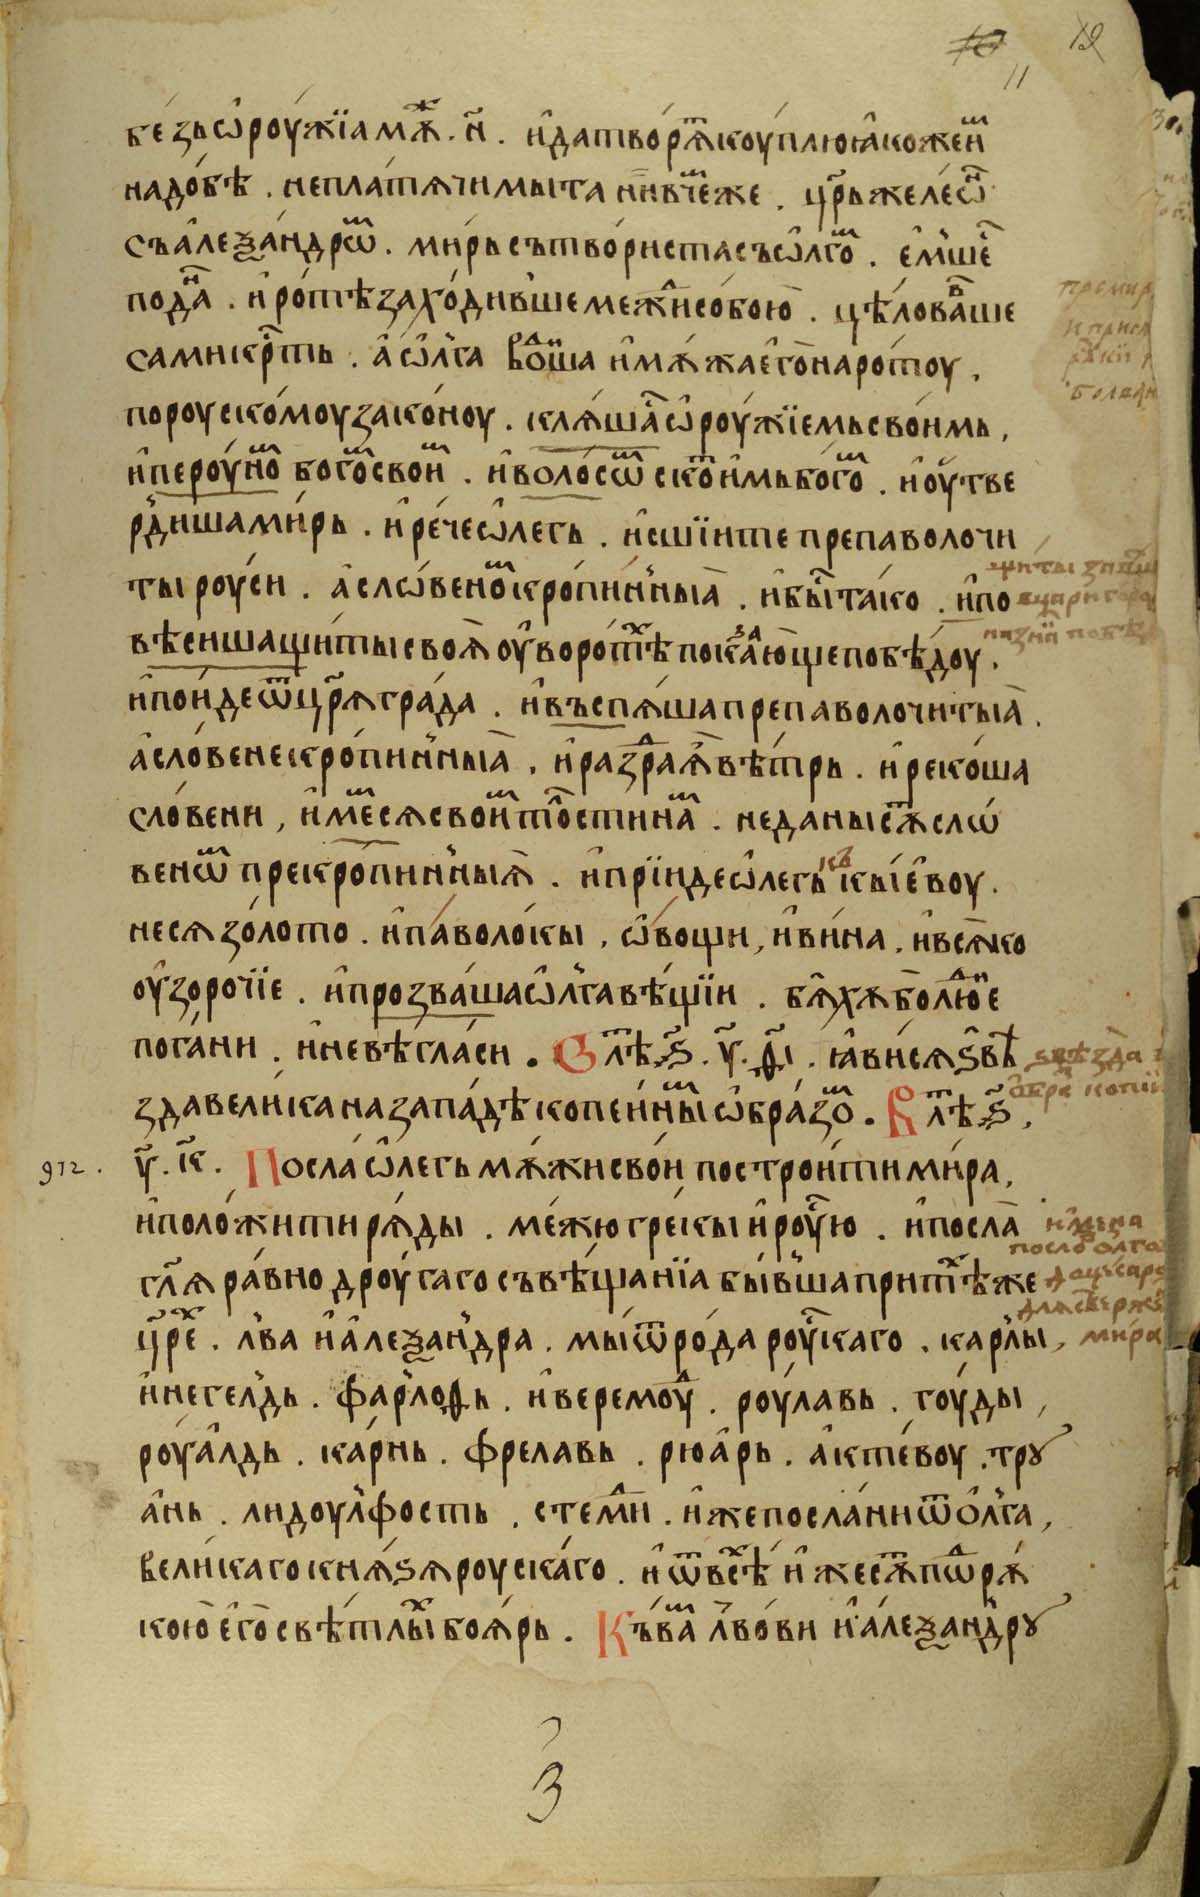 11 12
бе́зъ ѡ҆роу́жїа мѫⷤ. н҃. и҆ да творѧⷮ коу́плю ꙗ҆коже и҆ⷨ
надо́бѣ. не платѧ́чи мы́та ни в чеⷨже. цр҃ь же лео́ⷩ
съ а҆леѯа́ндрѡⷨ. ми́ръ сътвори́ста съ ѡ҆лгоⷨ. е҆́мшеⷭ
по даⷩ. и҆ ро́тѣ заходи́вше меⷤи собо́ю. цѣлова́вше
сами крⷭтъ. а҆ ѡ҆́лга води́ша и҆ мѫ́жа е҆го̀ на ро́тоу.
по роускомоу зако́ноу. клѧ́шаⷭ ѡ҆роу́жїемъ свои́мъ,
и҆ перу́ноⷨ бо́гоⷨ свои́ⷨ. и҆ воло́сѡⷨ ско́тїимъ бо́гоⷨ. и҆ оу҆тве
рди́ша ми́ръ. и҆ ре́че ѡ҆ле́гъ. и҆сшїите пре паволочи
ты роу́си. а҆ слѡ́веноⷨ кропи́нныа̀. и҆ быⷭ та́ко. и҆ по
вѣсиша щиты своѧ̀ оу҆ воро́тѣⷯ показа́юще побѣ́доу.
и҆ поиде ѿ цр҃ѧгра́да. и҆ въспѧ́ша пре паволочи́тыа̀.
а҆ сло́вене кропи́нныа̀. и҆ раздра̀ ѧ҆̀ вѣ́тръ. и҆ реко́ша
сло́вени, и҆мемсѧ свои́ⷨ толстинаⷨ. не даны сѫⷮ слѡ́
венѡⷨ пре кропи́нныѧ̀. и҆ прїи́де ѡ҆ле́гъ къ кы́евоу.
несѧ зо́лото. и҆ па́волокы, ѡ҆́вощи, и҆ ви́на. и҆ всѧ́ко
оу҆зоро́чїе. и҆ прозва́ша ѡ҆́лга вѣ́щїи. бѧ́хѫ бо лю́дїе
пога́ни. и҆ невѣ́гласи. В лѣⷮ ѕ҃. у҃. ѳ҃і. ꙗ҆ви́сѧ ѕвѣ
зда вели́ка на за́падѣ копе́йныⷨ ѡ҆́бразоⷨ. В лѣⷮ ѕ҃,
912. у҃. к҃. Посла ѡ҆ле́гъ мѫ́жи свои́ построи́ти ми́ра,
и҆ положи́ти рѧ́ды. ме́жю гре́кы и҆ роу́сїю. и҆ посла̀
гл҃ѧ ра́вно дроуга́го съвѣща́нїа бы́вша при тѣⷯже
цр҃еⷯ. лва и҆ а҆леѯа́ндра. мы ѿ ро́да роу́скаго. ка́рлы,
и҆негелдъ. фарлоѳъ. и҆ веремоуⷣ. роу́лавъ. гоуды,
роуа́лдъ. ка́рнъ. фре́лавъ. рюа́ръ. а҆кте́воу. тру
а҆нъ. лидоу́лфостъ. стемиⷣ. и҆же по́слани ѿ о҆лга,
вели́каго кнѧ́ѕѧ роуска́го. и҆ ѿ всѣⷯ и҆же сѫⷮ поⷣ рѫ
ко́ю е҆го̀ свѣ́тлыⷯ боѧ́ръ. Къ ва́ⷨ лво́ви и҆ а҆леѯандру
з